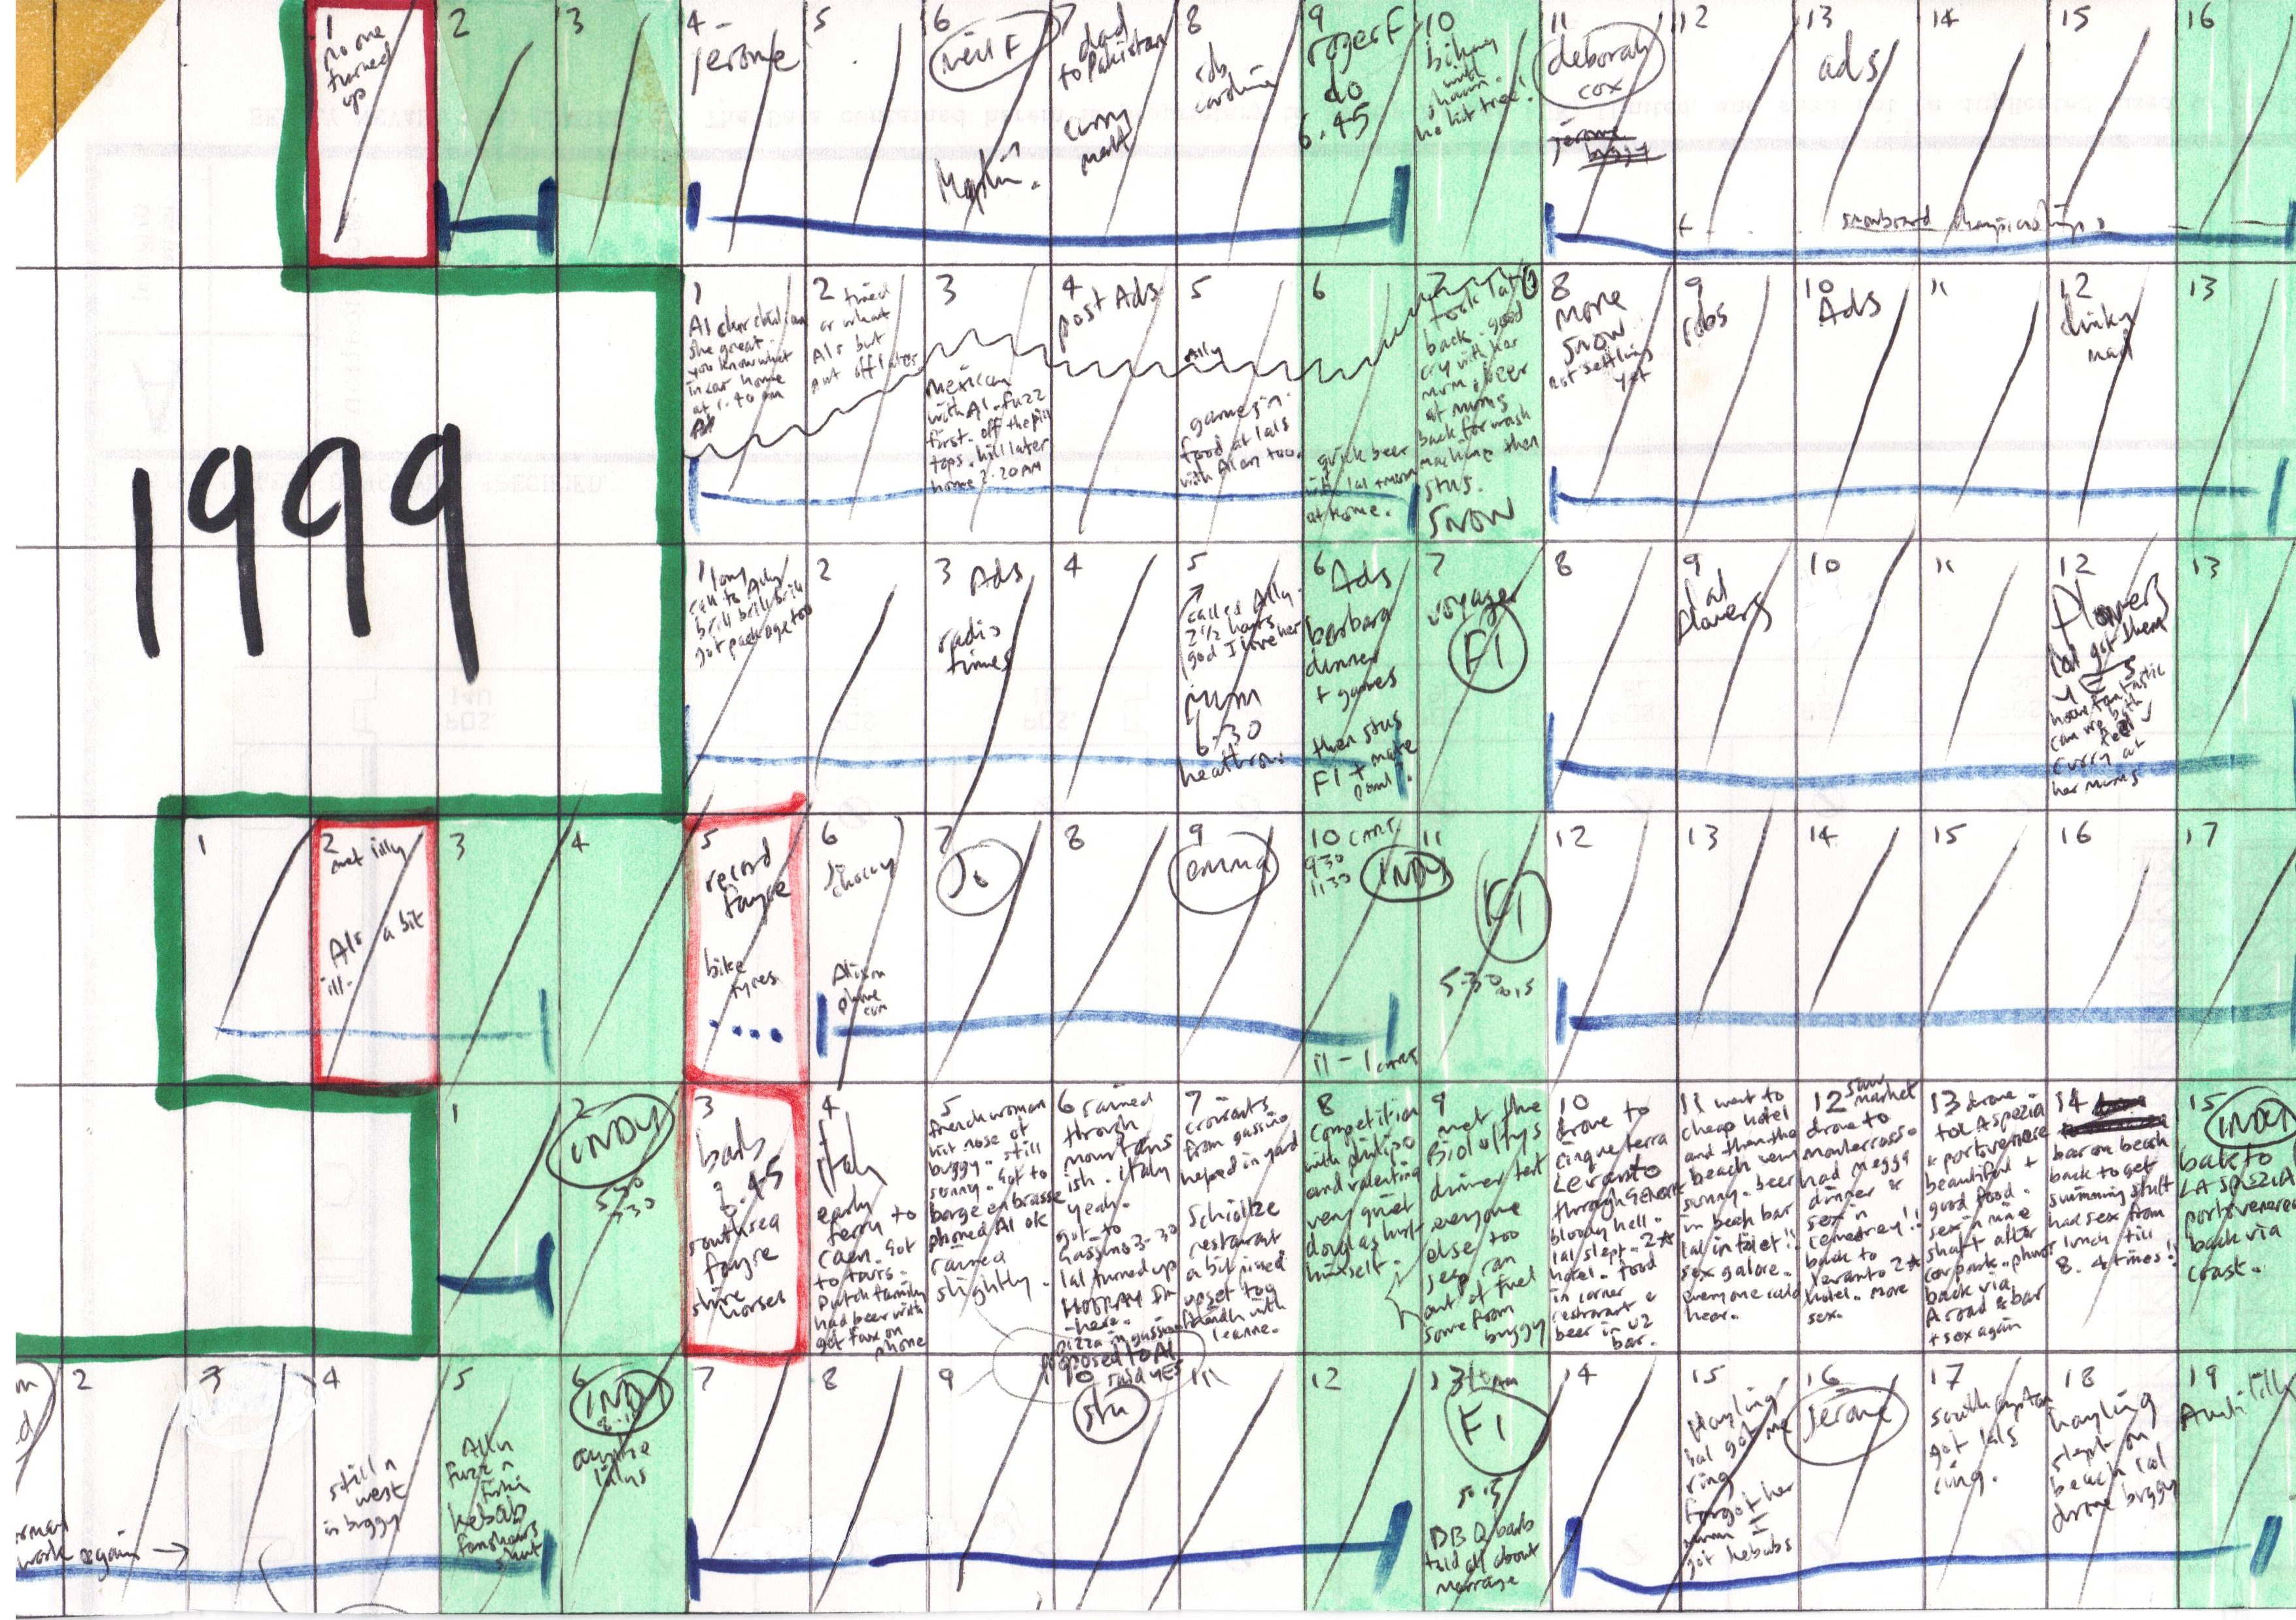 1999
1
no one
turned
up
2
3
4
Jerome
5
6
neil F
Martin.
7
dad
to Pakistan
curry
matt
8
rob
caroline
9
roger F
do
6.45
10
biking
with
shaun.
he hit tree!
11
deborah
cox
jerome
buggy
12
13
ads
14
15
16
snowboard championships
1
she great
you know what
in car home
at 1.40 am
2
tired
or what
Als but
put off later
3
mexican
with Al. fuzz
first. off the pill
tops. hill later
home 2.20 AM
4
post Ads
5
Ally
games in.
food at lals
with Alan too.
6
quick beer
with lal + mum
at home.
7
took lal to
back. good
cry with her
mum. beer
at mums
back for wash
machine then
stus.
SNOW
8
more
snow
not settling
yet
9
robs
10
Ads
11
12
dinky
mad
13
1
long
call to Ally
brill brill brill
got package too
2
3
Ads
radio
times
4
5
called Ally.
2 1/2 hours
god I love her
mum
6-30
heathrow.
6
Ads
barbara
dinner
+ games
then stus
F1 + mate
paul.
7
voyager
F1
8
9
lal
Plovers
10
11
12
Plovers
lal got them
YES
how fantastic
can we both
feel
curry at
her mums
13
1
2
met illy
Als a bit
ill.
3
4
5
record
fayre
bike
tyres
6
choccy
Alison
phone
7
Jo
8
9
emma
10
CART
9-30
11-30
INDY
11-1 CARTS
11
F1
5-30
12
13
14
15
16
17
1
2
INDY
5-30
7-30
3
barbs
2.45
southsea
fayre
shire
horses
4
italy
early
ferry to
caen. got
to tours.
Dutch family
had beer with
got fax on
phone
5
french woman
hit nose of
buggy. still
sunny. Got to
borge en brasse
phoned Al ok
rained
slightly.
6
rained
through
mountains
ish. italy
yeah.
got to
Gassino 3-30
lal turned up
HOORAY I'm
here.
pizza in gassino
proposed to Al
said YES
7
croissants
from gassino
helped in yard
Schiolze
restaurant
a bit pissed
upset too
friends with
leanne.
8
Competition
with philipo
and valentino
very quiet
douglas hurt
himself.
9
met the
Bidulttys
dinner test
everyone
else too
jeep ran
out of fuel
some from
buggy
10
drove to
cinque terra
Levanto
through Genova
bloody hell.
lal slept. 2★
hotel. food
in corner
restaurant &
beer in U2
bar.
11
went to
cheap hotel
and then the
beach very
sunny. beer
in beach bar
lal in toilet!!
sex galore.
everyone could
hear.
12
saw
market
drove to
monterrosso
had megga
dinner &
sex in
cemetrey!!
back to
levanto 2★
hotel. more
sex.
13
drove
to LA spezia
& portovenere
beautiful +
good food.
sex in mine
shaft after
car park.
back via
A road & bar
+ sex again
14
bar on beach
back to get
swimming stuff
had sex from
lunch till
8. 4 times!!
15
INDY
back to
LA SPEZIA
portovenere
back via
coast.
2
work again →
3
4
still n
west
in buggy
5
Al n
fuzz n
kebab
fanshaws
shut
6
INDY
7
8
9
10
stu
11
12
13
F1
BBQ barb
told all about
marriage
14
15
Hayling
lal got me
ring
forgot her
mum I
got kebabs
16
Jerome
17
southampton
got lals
ring.
18
hayling
slept on
beach lal
drove buggy
19